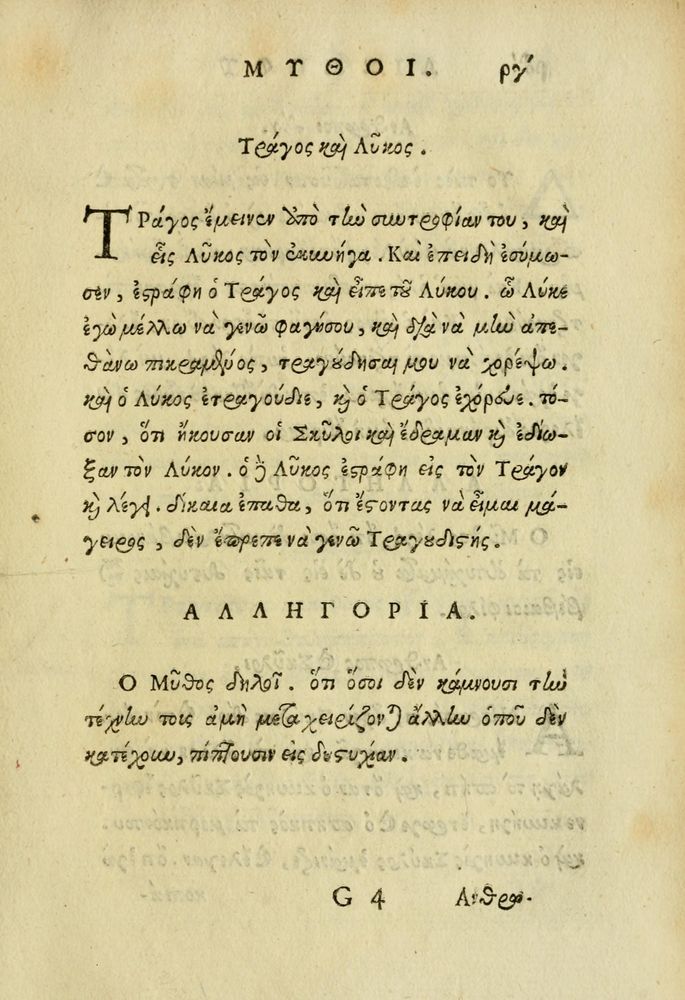 ΜΥΘΟΙ. ργʹ
Τράγος καὶ Λῦκος.
ΤΡάγος ἔμεινεν ἀπὸ τὴν συντροφίαν του, καὶ
εἷς Λῦκος τὸν ἐκυνήγα. Καὶ ἐπειδὴ ἐσύμω-
σεν, ἐστράφη ὁ Τράγος καὶ εἶπε τοῦ Λύκου. ὦ Λύκε
ἐγὼ μέλλω νὰ γενῶ φαγήσου, καὶ διὰ νὰ μὴν ἀπε-
θάνω πικραμένος, τραγούδησαι μου νὰ χορέψω.
καὶ ὁ Λύκος ἐτραγούδιε, καὶ ὁ Τράγος ἐχόρευε. τό-
σον, ὅτι ἤκουσαν οἱ Σκῦλοι καὶ ἔδραμαν καὶ ἐδίω-
ξαν τὸν Λύκον. ὁ δὲ Λῦκος ἐστράφη εἰς τὸν Τράγον
καὶ λέγει. δίκαια ἔπαθα, ὅτι ἔστοντας νὰ εἶμαι μά-
γειρος, δὲν ἔπρεπε νὰ γενῶ Τραγουδιστής.
ΑΛΛΗΓΟΡΙΑ.
Ο Μῦθος δηλοῖ. ὅτι ὅσοι δὲν κάμνουσι τὴν
τέχνην τοις ἀμὴ μεταχειρίζονται ἄλλην ὁποῦ δὲν
κατέχουν, πίπτουσιν εἰς δυστυχίαν.
G 4 Ανθρω-